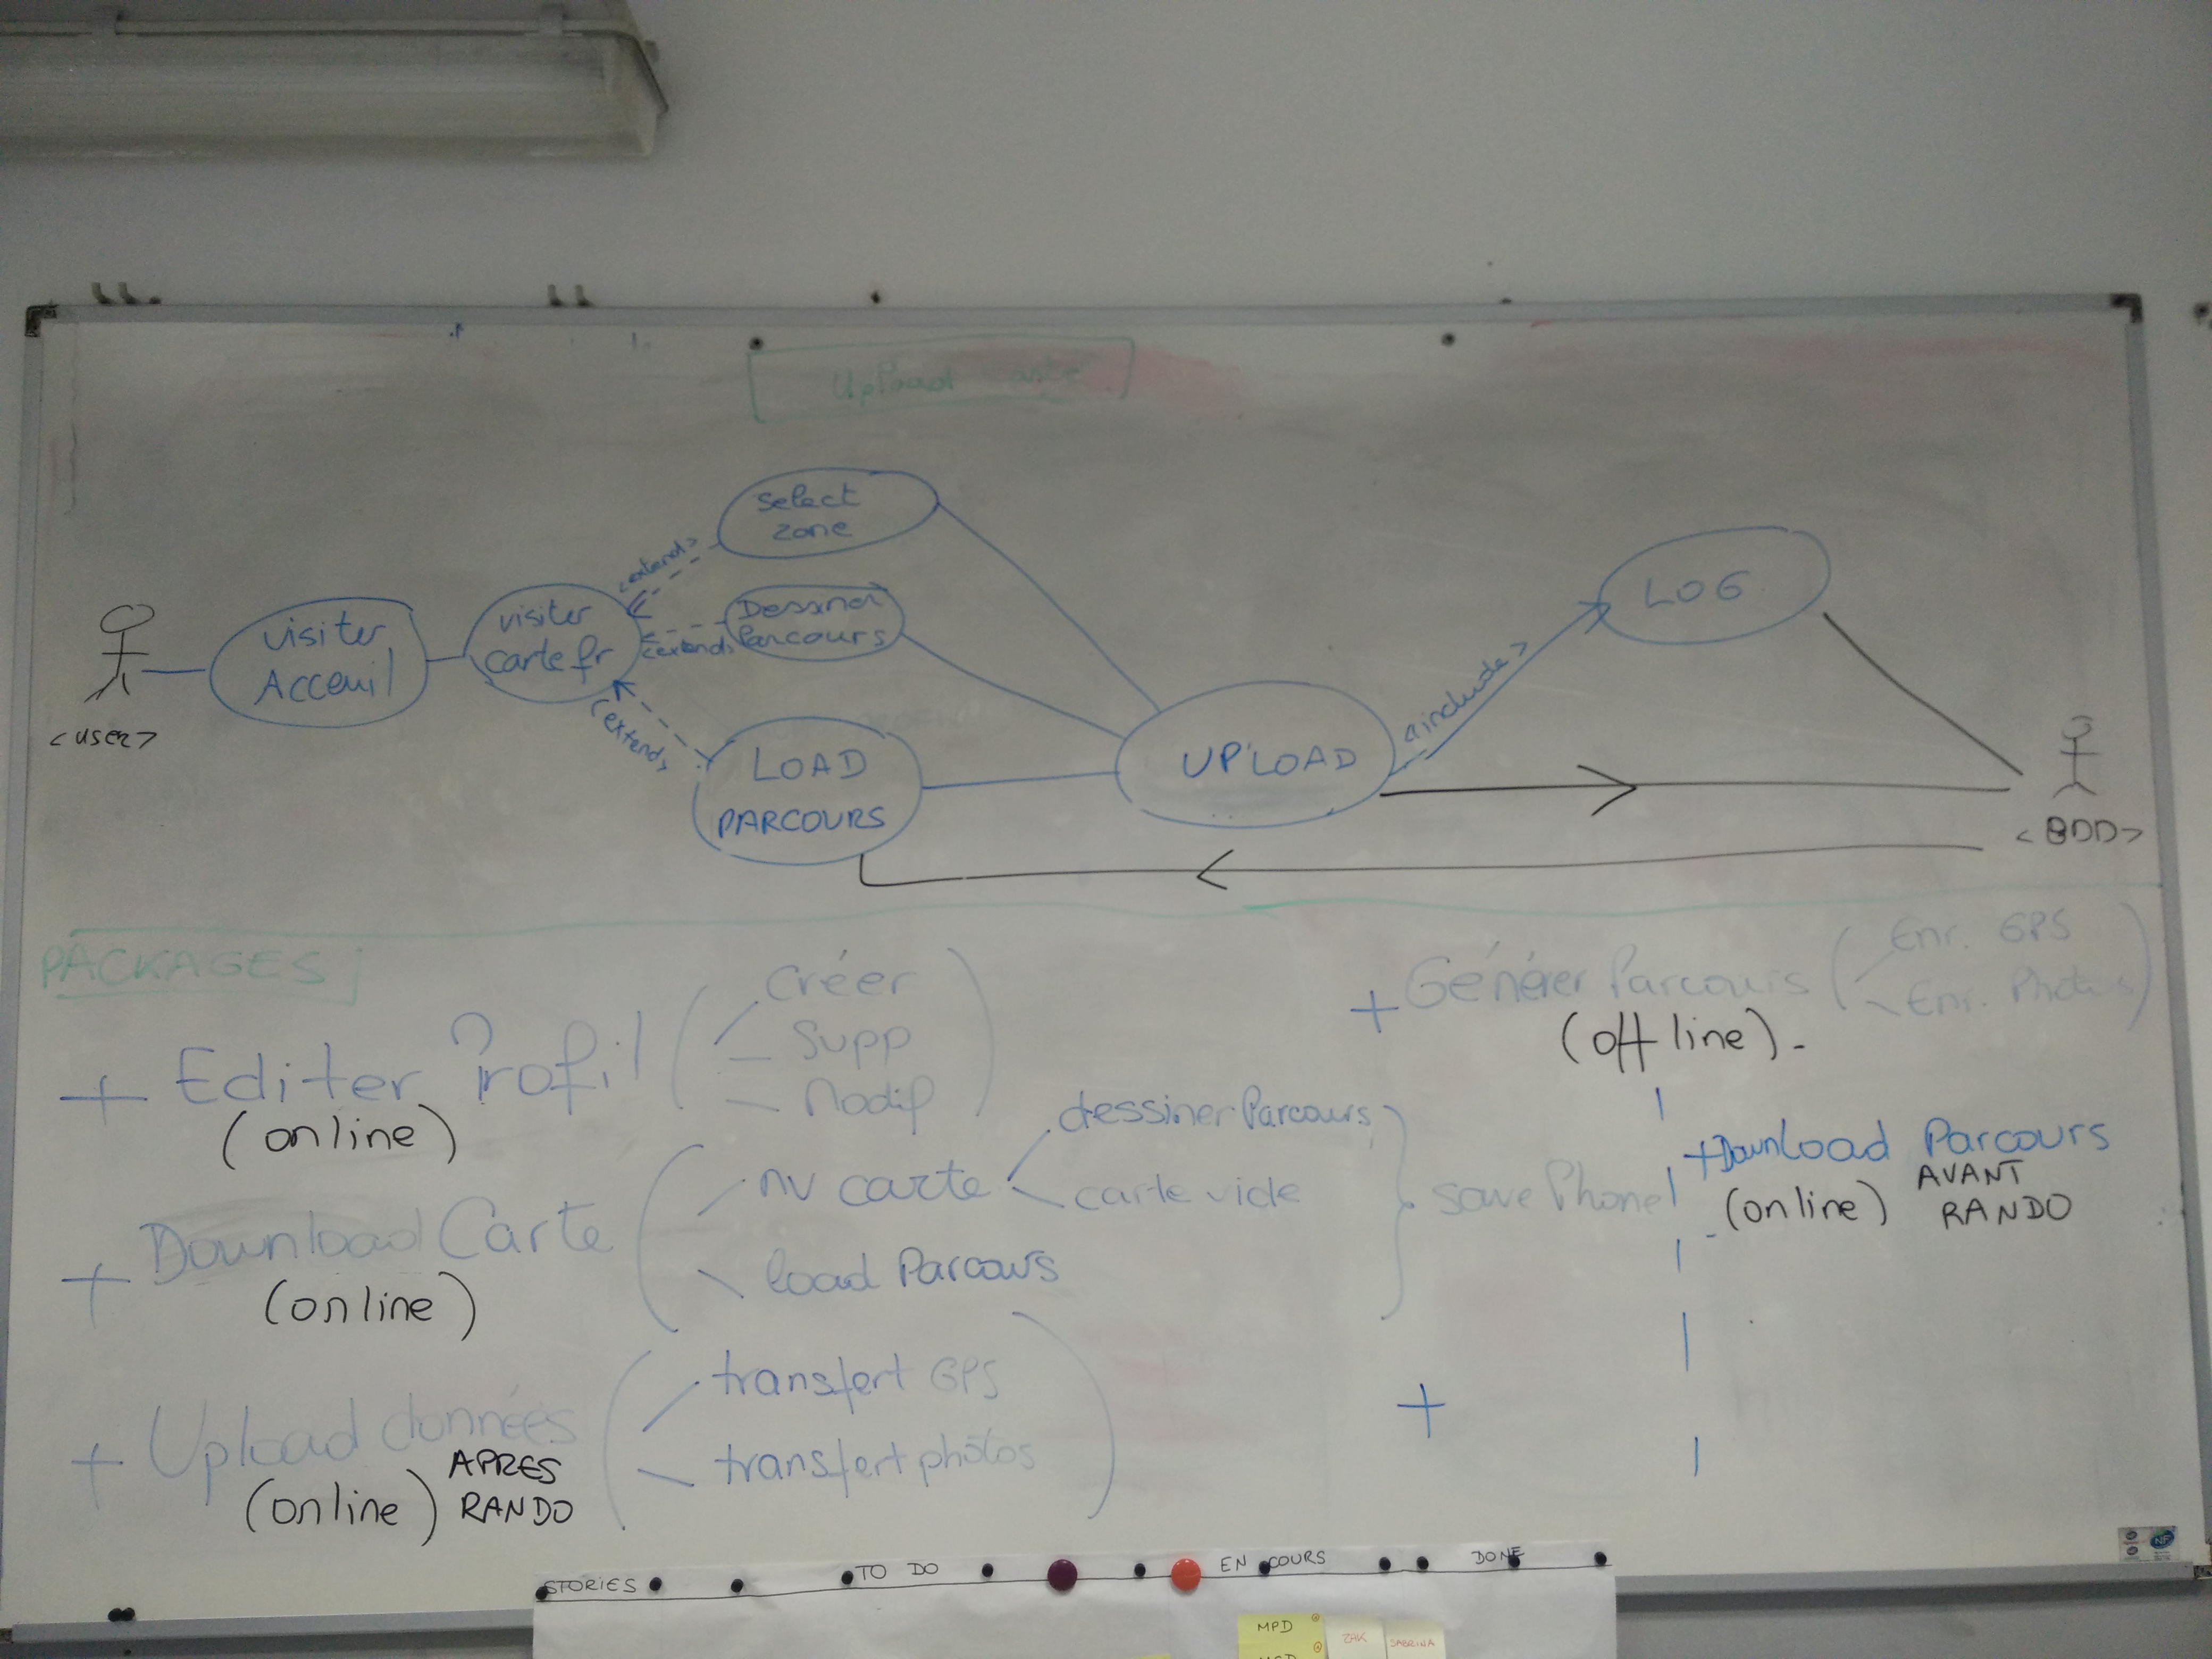 Upload
select
zone
<extends>
Dessiner
Parcours
<extends>
visiter
Acceuil
visiter
carte fr
<extends>
LOAD
PARCOURS
UPLOAD
<include>
LOG
<USER>
<BDD>
PACKAGES
+ Editer Profil
(online)
Créer
Supp
Modif
+ Download Carte
(online)
nv carte
dessiner Parcours
carte vide
load Parcours
save Phone
+ Upload données
(online)
APRES
RANDO
transfert GPS
transfert photos
+ Générer Parcours
(off line) -
Enr. GPS
Enr. Photos
+ Download Parcours
(online)
AVANT
RANDO
+
STORIES
TO DO
EN COURS
DONE
MPD
ZAK
SABRINA